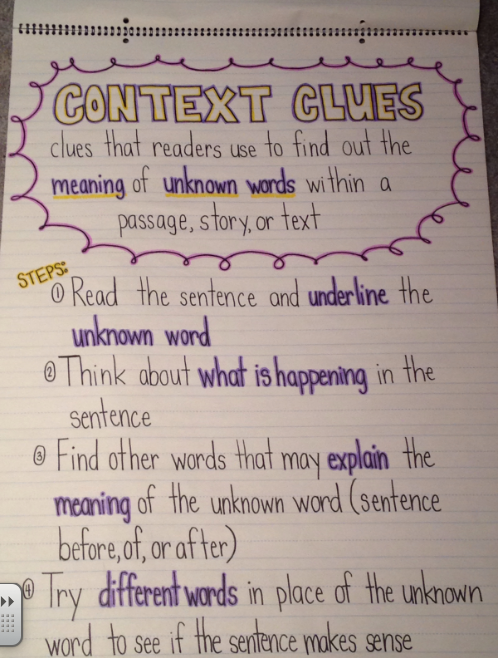 CONTEXT CLUES
clues that readers use to find out the
meaning of unknown words within a
passage, story, or text
STEPS:
① Read the sentence and underline the
unknown word
② Think about what is happening in the
sentence
③ Find other words that may explain the
meaning of the unknown word (sentence
before, of, or after)
④ Try different words in place of the unknown
word to see if the sentence makes sense